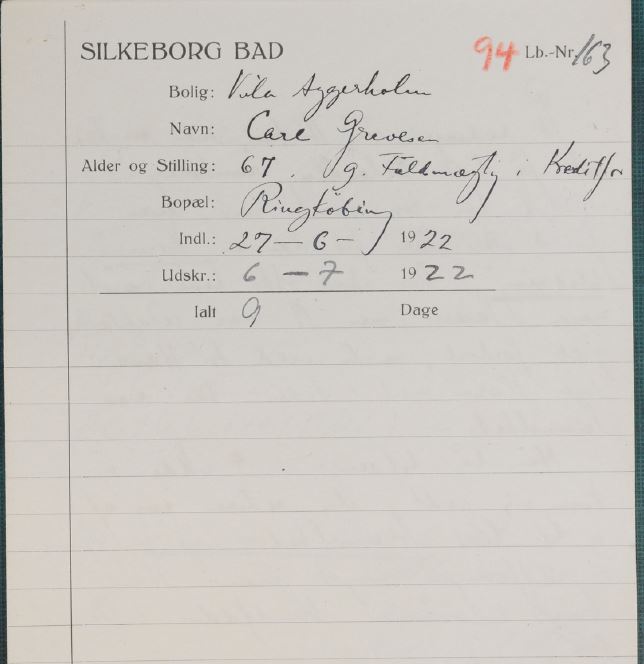 SILKEBORG BAD 94 Lb.-Nr. 163
Bolig: Vila Aggerholm
Navn: Carl Grevesen
Alder og Stilling: 67. g. Fuldmægtig i Kreditfor
Bopæl: Ringkøbing
Indl.: 27 – 6 – 1922
Udskr.: 6 – 7 1922
Ialt 9 Dage